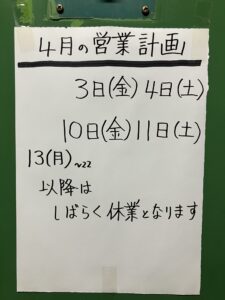 4月の営業計画
3日(金)4日(土)
10日(金)11日(土)
13(月)~22
以降は
しばらく休業となります